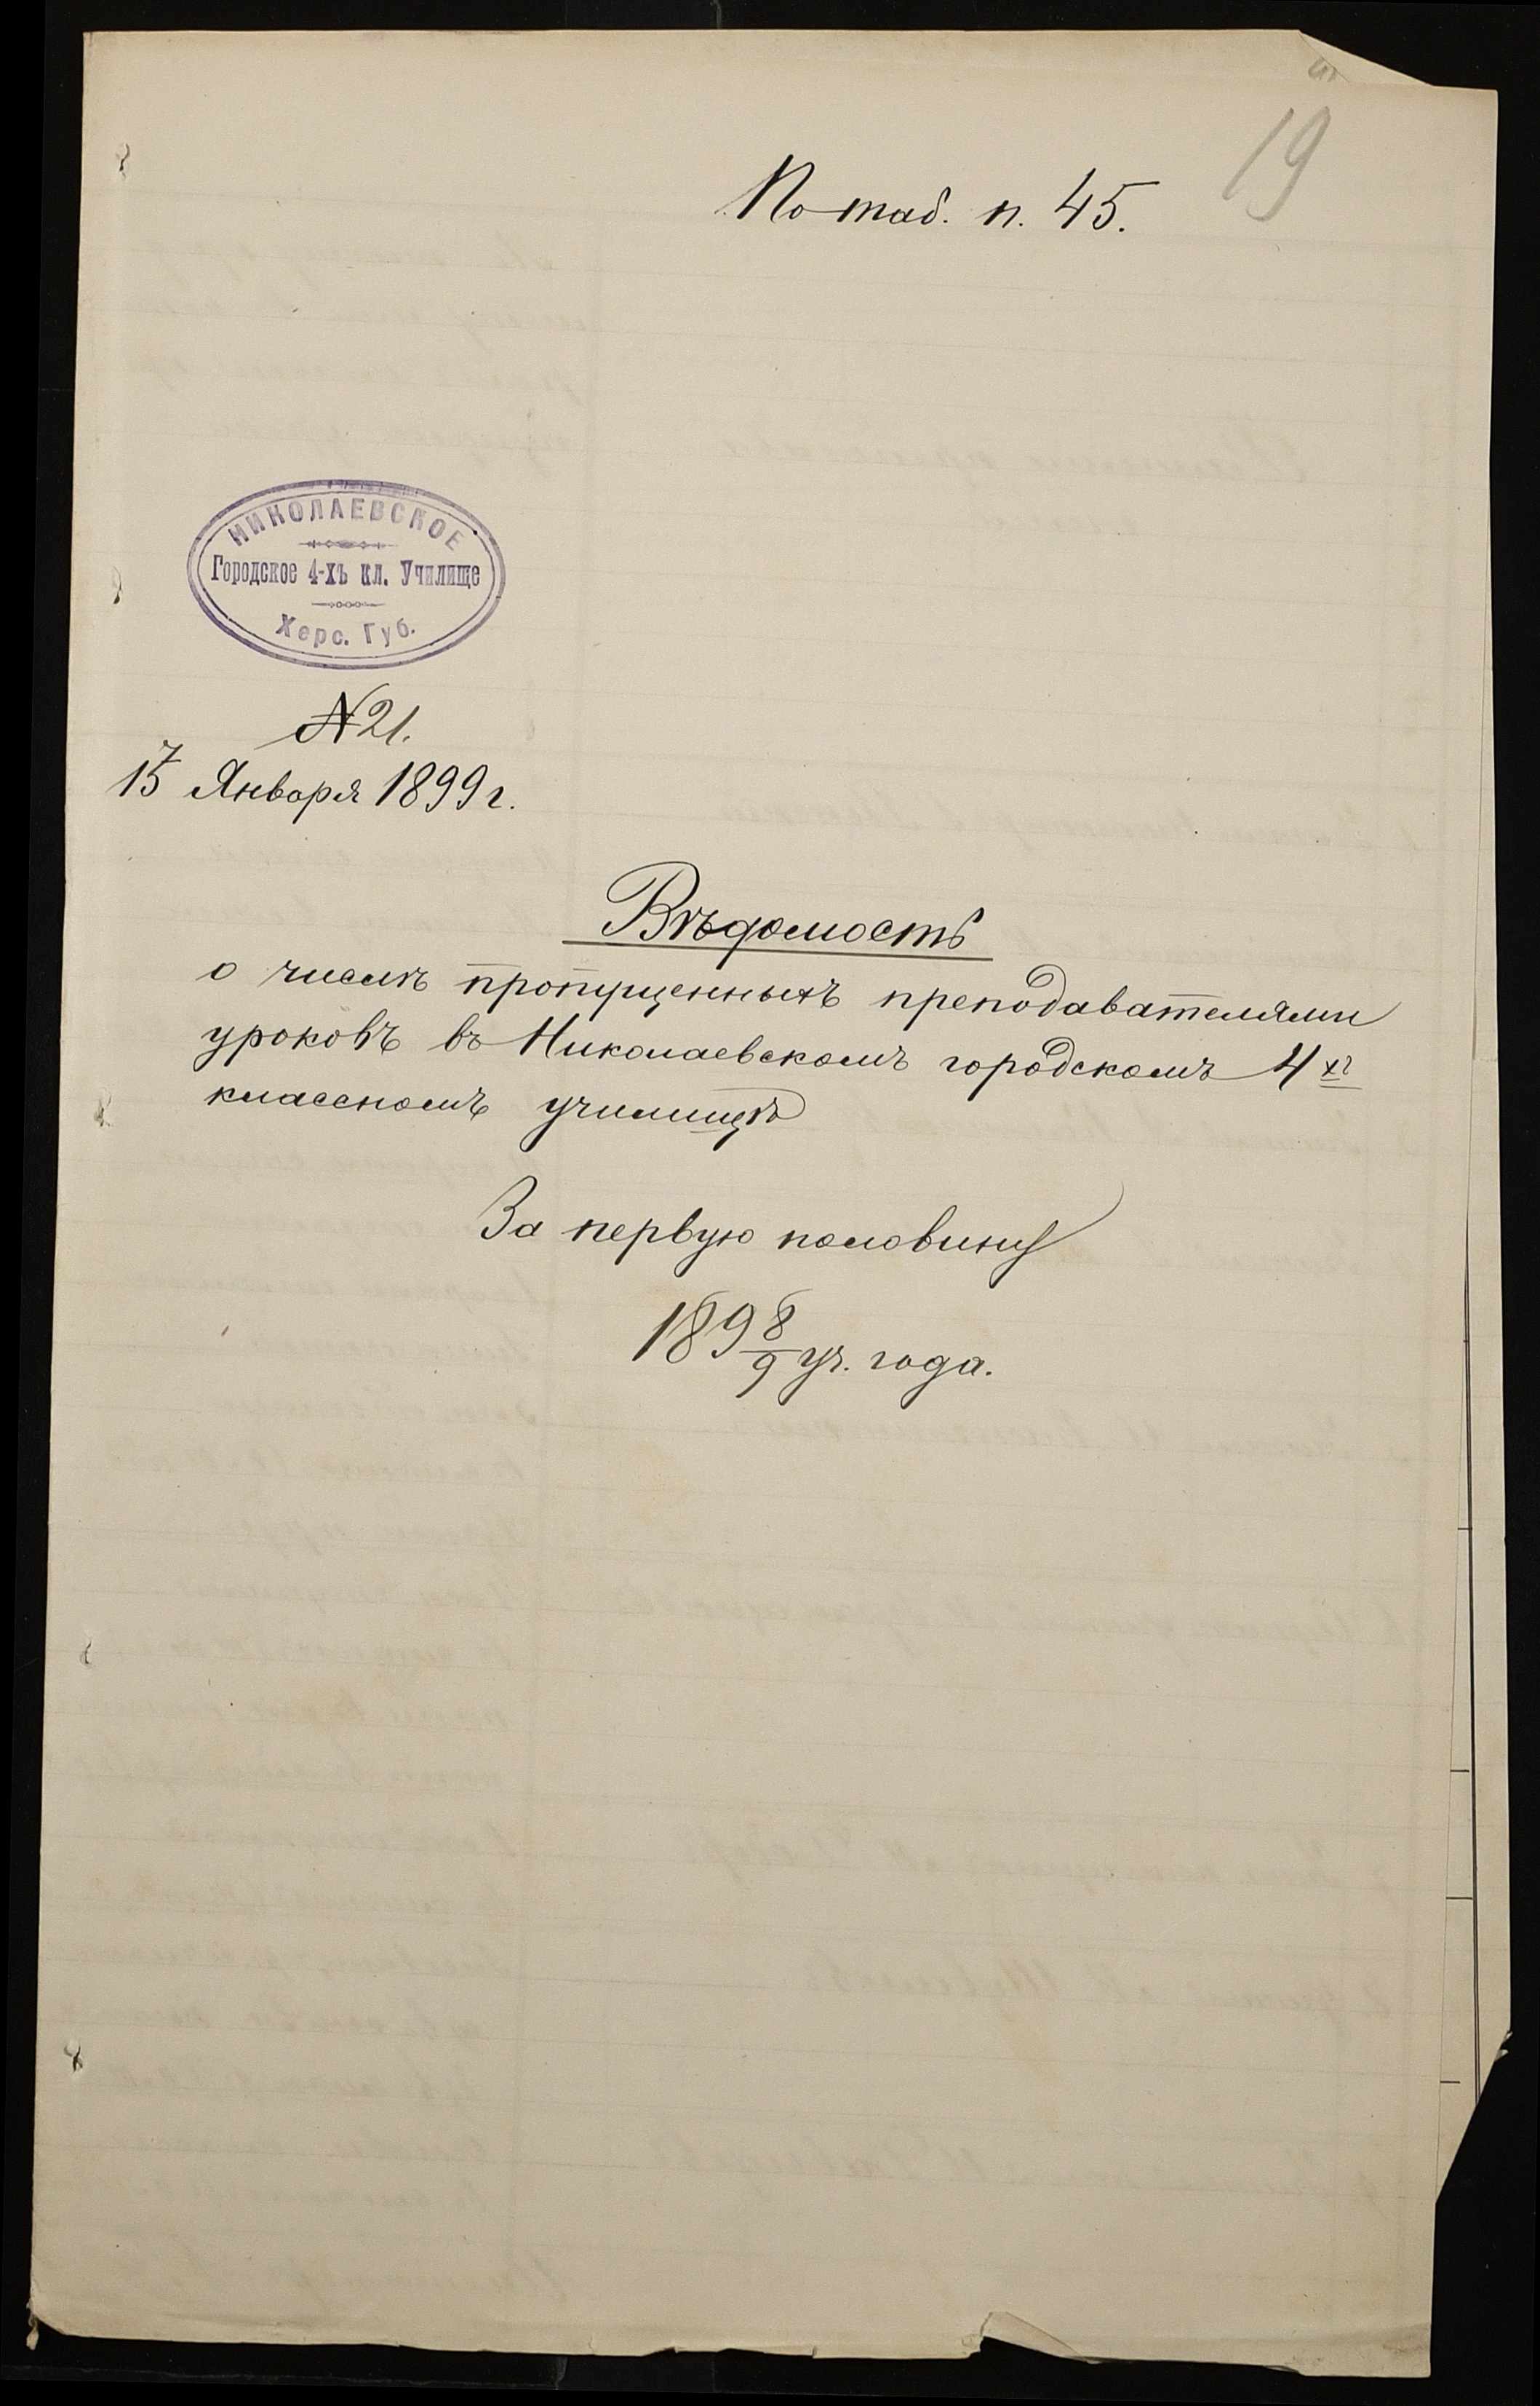 19
По таб. п. 45.
НИКОЛАЕВСКОЕ
Городское 4-хъ кл. Училище
Херс. Губ.
№ 21.
17 Января 1899 г.
Вѣдомость
о числѣ пропущенныхъ преподавателями
уроковъ въ Николаевскомъ городскомъ 4хъ
классномъ училищѣ
За первую половину
1898/9 уч. года.